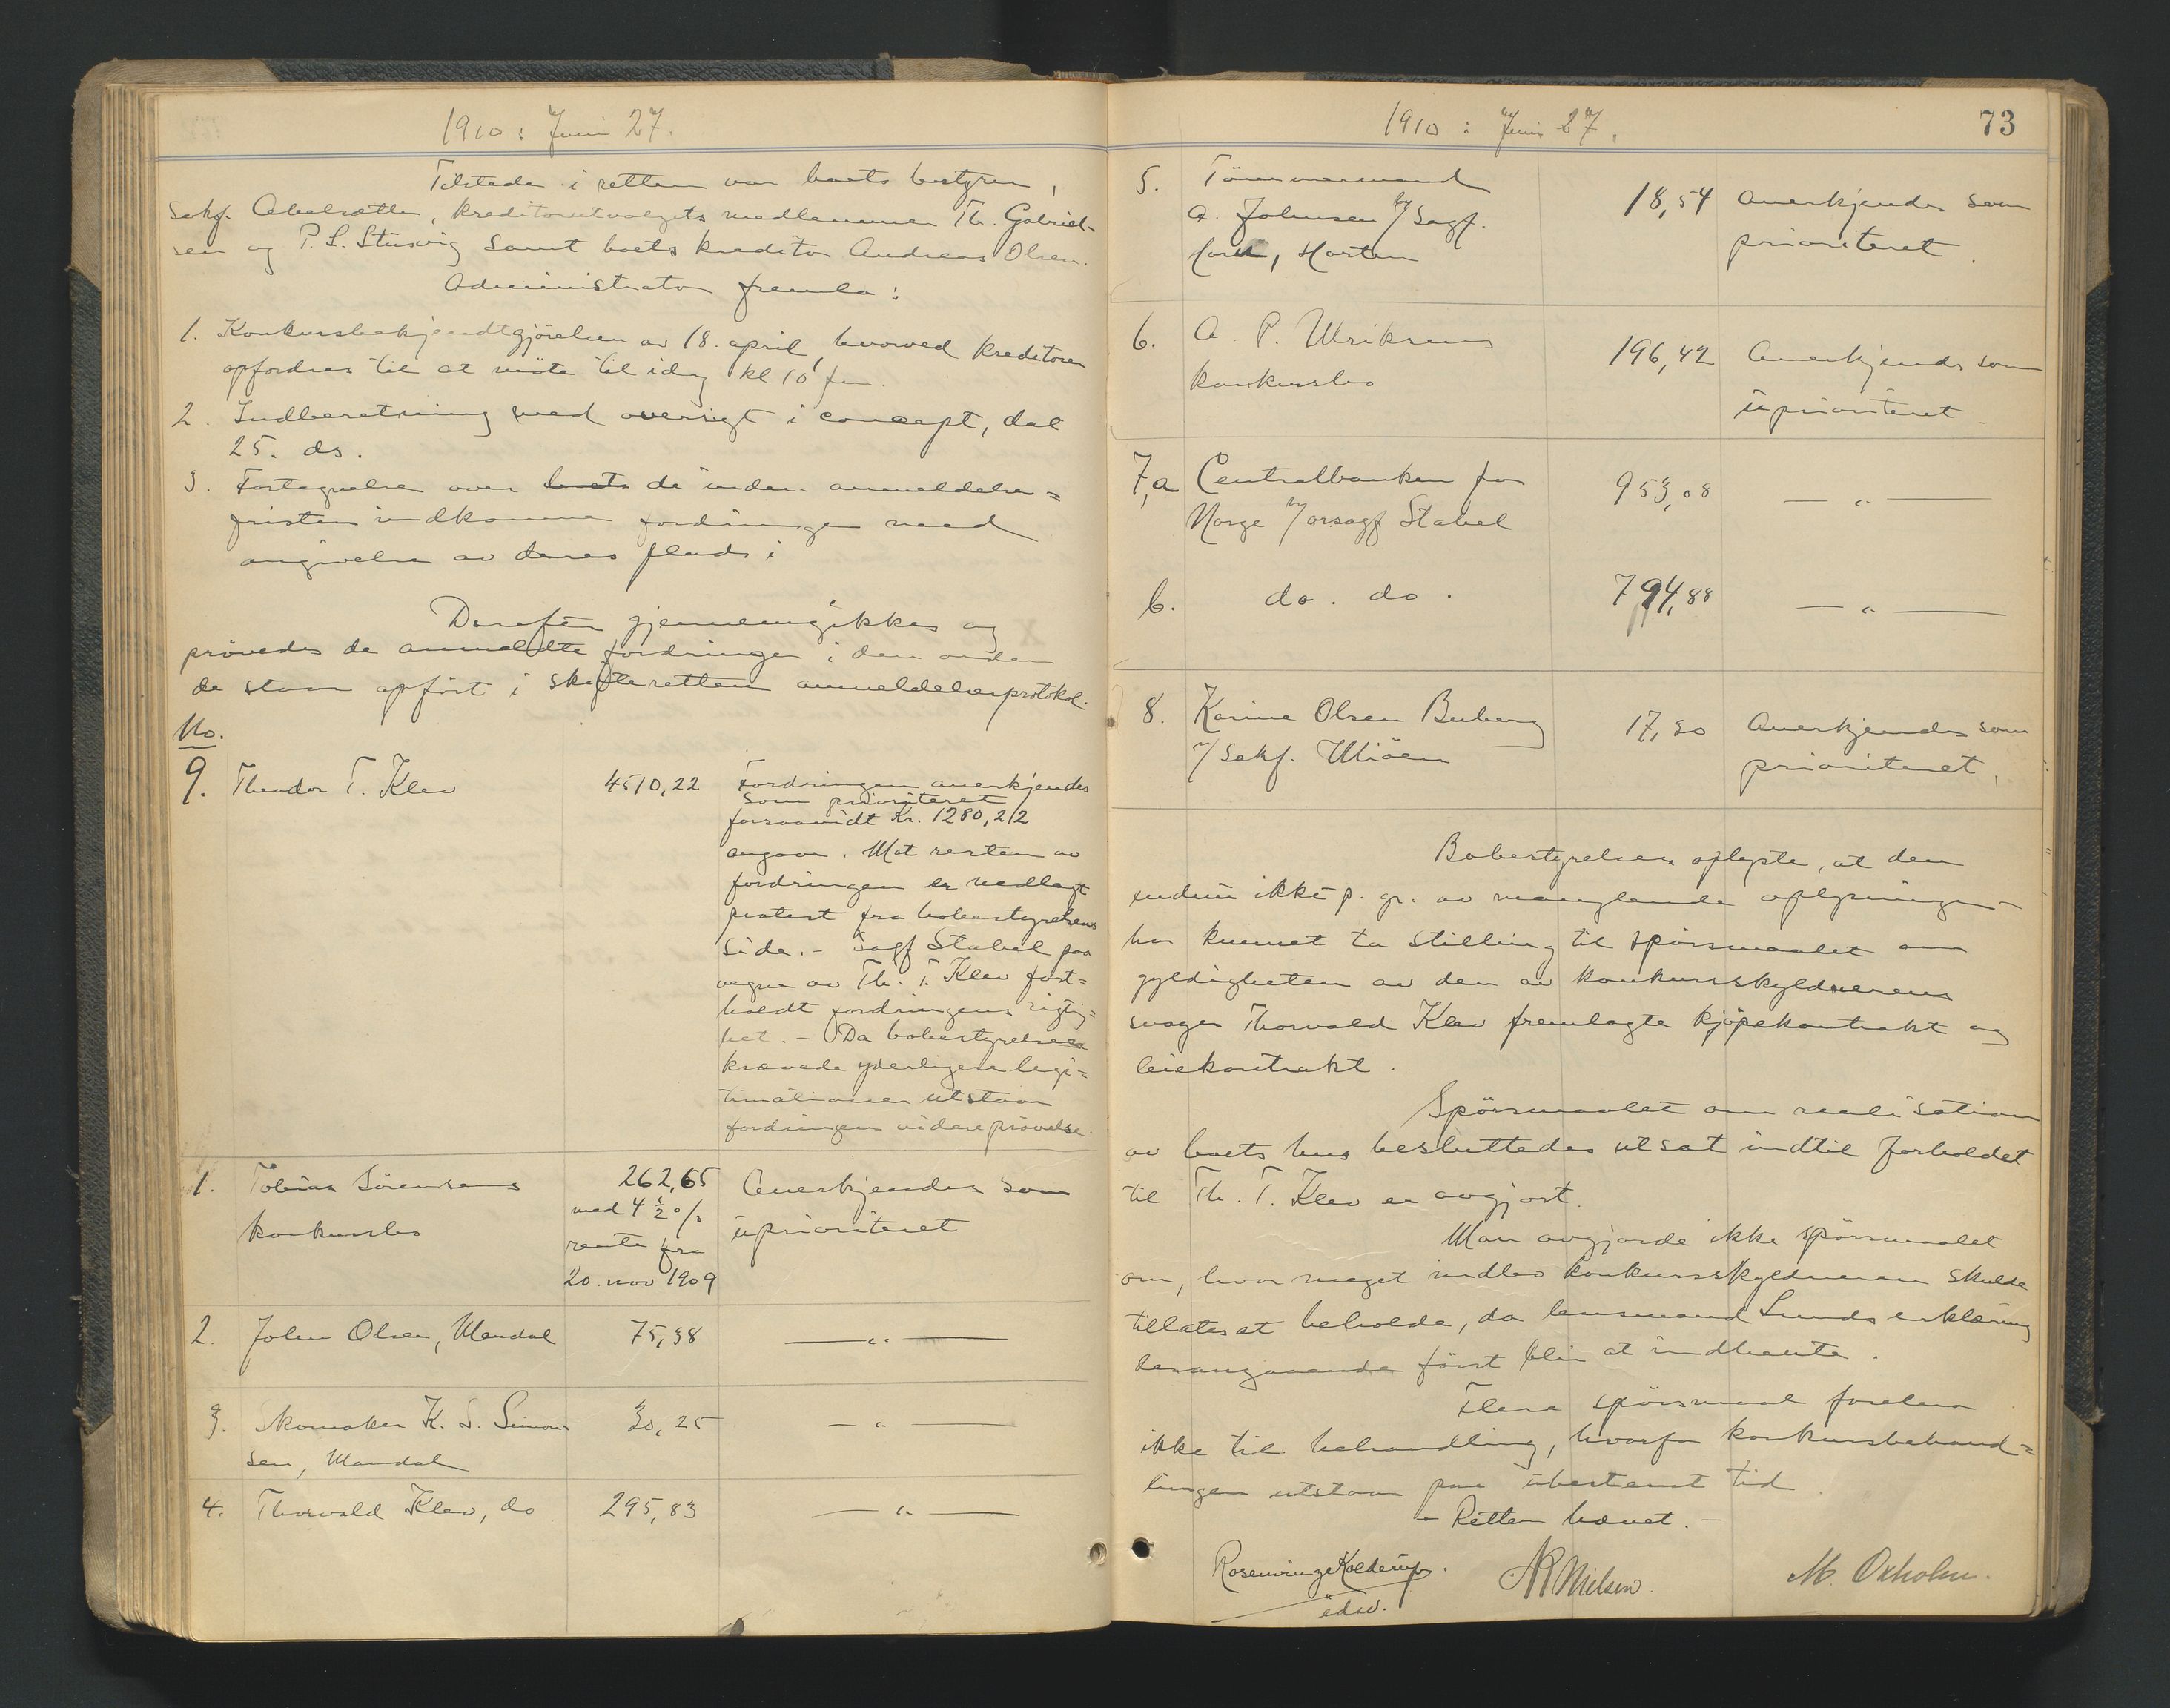 1910 : Juni 27.
Tilstede i retten var boets bestyrer,
sakf. Abelsætter, kreditorutvalgets medlemmer Th. Gabriel-
sen og P. S. Stusvig samt boets kreditor Andreas Olsen.
Administrator fremla :
1. Konkursbekjendtgjörelsen av 18. april, hvorved kreditorer
opfordres til at möte til idag kl 10 fm.
2. Indberetning med oversigt i concept, dat
25. ds.
3. Fortegnelse over boets de inden anmeldelses=
fristen indkomne fordringer med
angivelse av deres plads i
Derefter gjennemgikkes og
prövedes de anmeldte fordringer i den orden
de staar opfört i skifterettens anmeldelsesprotokol.
No.
9. Theodor T. Klev 4510,22 Fordringen anerkjendes
som prioriteret
forsaavidt Kr. 1280,22
angaar. Mot resten av
fordringen er nedlagt
protest fra bobestyrelsens
side. – Sagf Stabel paa
vegne av Th. T. Klev fast=
holdt fordringens rigtig=
het. – Da bobestyrelsen
krævede yderligere legi=
timationer utstaar
fordringen videre prövelse.
1. Tobias Sörensens 262,65 Anerkjendes som
konkursbo med 4½ % uprioriteret
rente fra
20. nov 1909
2. John Olsen, Mandal 75,38 — " —
3. Skomaker K. S. Simon 30,25 — " —
sen, Mandal
4. Thorvald Klev, do 295,83 — " —
1910 : Juni 27.
73
5. Tömmermand 18,54 Anerkjendes som
A. Johnsen v/ Sagf. prioriteret.
, Horten
6. A. P. Ulriksens 196,42 Anerkjendes som
konkursbo uprioriteret.
7,a Centralbanken for 953,08 — " —
Norge v/ orsagf Stabel
b. do. do. 794,88 — " —
8. Karine Olsen Buberg 17,30 Anerkjendes som
v/ Sakf. Miöen prioriteret.
Bobestyrelsen oplyste, at den
endnu ikke p. gr. av manglende oplysninger
har kunnet ta stilling til spörsmaalet om
gyldigheten av den av konkursskyldnerens
svoger Thorvald Klev fremlagte kjöpekontrakt og
leiekontrakt.
Spörsmaalet om realisation
av boets hus besluttedes utsat indtil forholdet
til Th. T. Klev er avgjort.
Man avgjorde ikke spörsmaalet
om, hvor meget indbo konkursskyldneren skulde
tillates at beholde, da lensmand Lunds erklæring
desangaaende först blir at indhente.
Flere spörsmaal forelaa
ikke til behandling, hvorfor konkursbehand=
lingen utstaar paa ubestemt tid.
– Retten hævet. –
Rosenvinge Kolderup. N R Nielsen. M. Oxholm.
edsv.